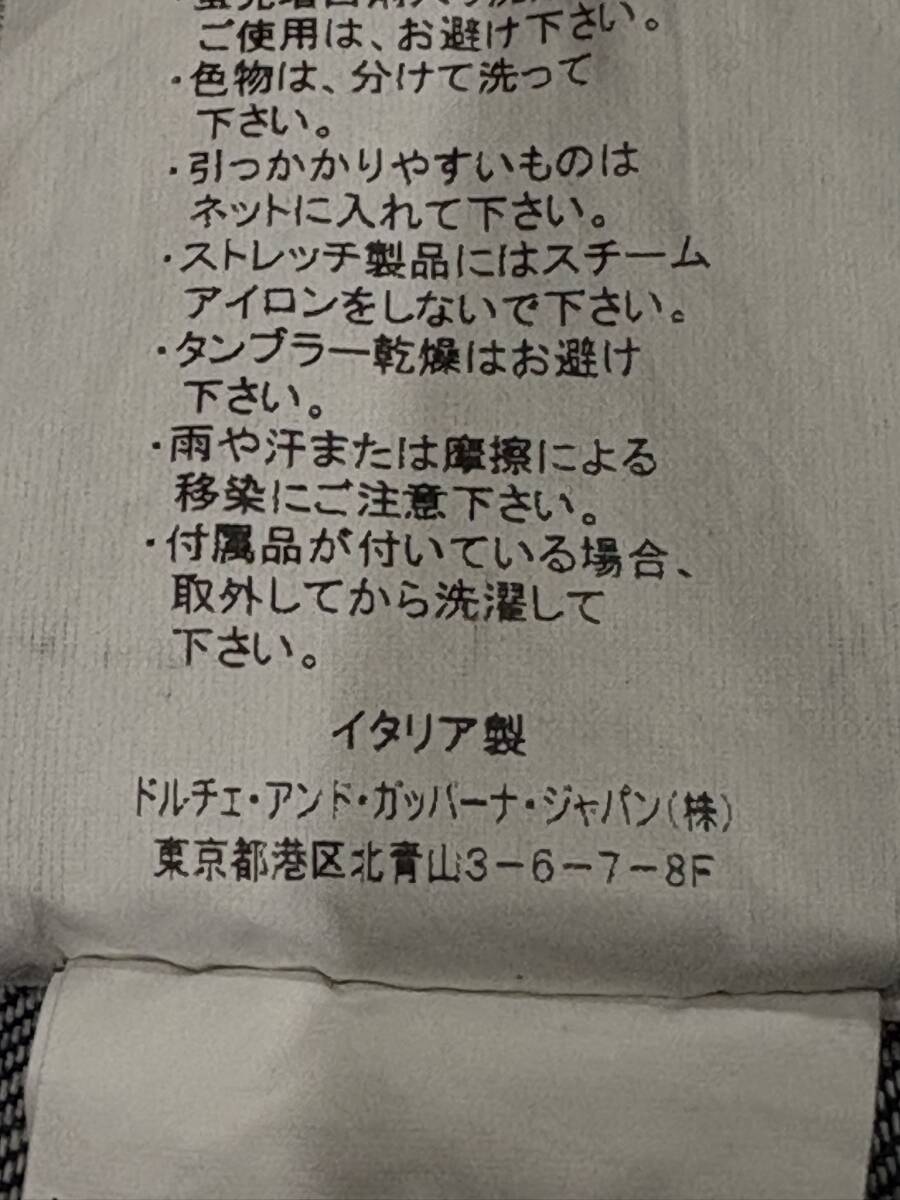 ご使用は、お避け下さい。
・色物は、分けて洗って
下さい。
・引っかかりやすいものは
ネットに入れて下さい。
・ストレッチ製品にはスチーム
アイロンをしないで下さい。
・タンブラー乾燥はお避け
下さい。
・雨や汗または摩擦による
移染にご注意下さい。
・付属品が付いている場合、
取外してから洗濯して
下さい。
イタリア製
ドルチェ・アンド・ガッバーナ・ジャパン(株)
東京都港区北青山3-6-7-8F